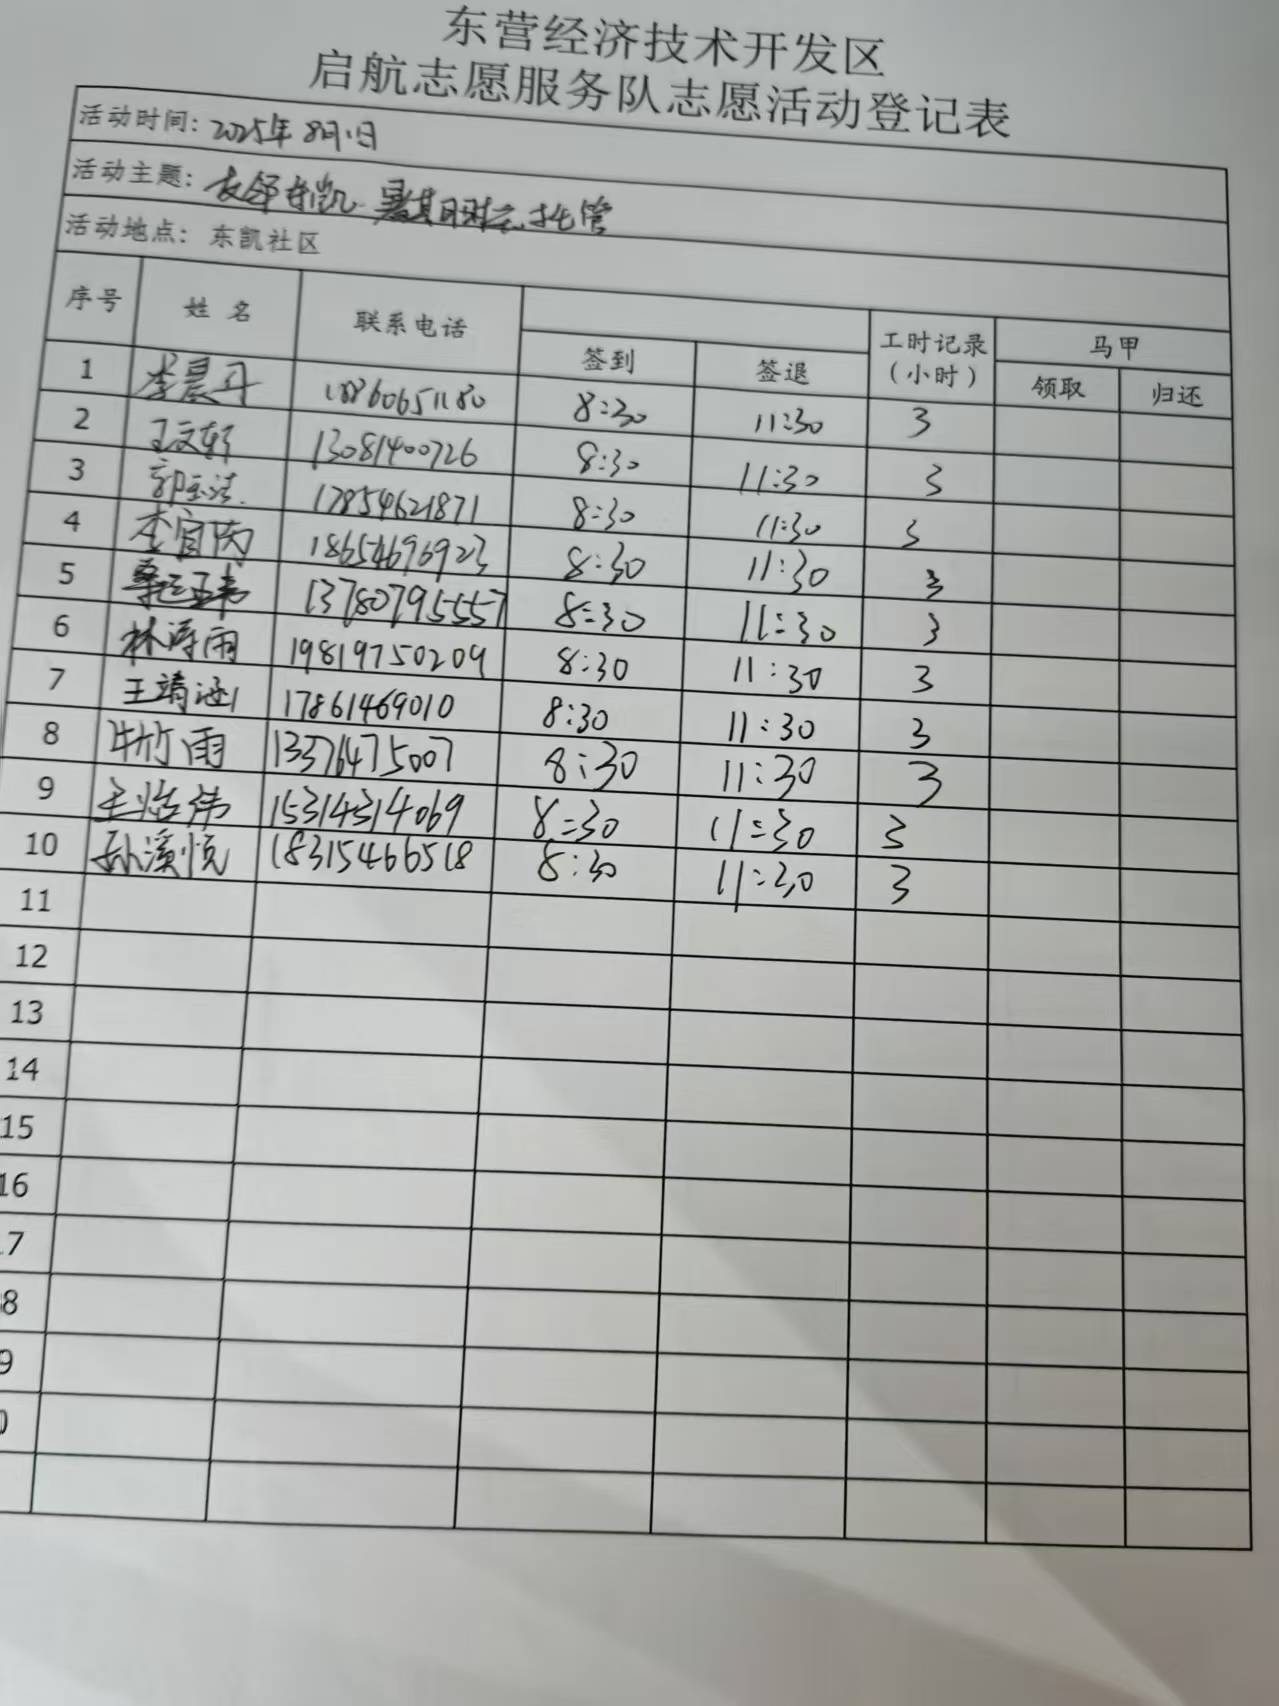 东营经济技术开发区
启航志愿服务队志愿活动登记表
活动时间: 2025年8月1日
活动主题: 友邻东凯 暑期 托管
活动地点: 东凯社区
序号 姓名 联系电话 签到 签退 工时记录(小时) 马甲 领取 归还
1 李晨丹 18860651180 8:30 11:30 3
2 王文轩 13081400726 8:30 11:30 3
3 17854621871 8:30 11:30 3
4 李宜芮 18654696923 8:30 11:30 3
5 13780795557 8:30 11:30 3
6 林涛雨 19819750209 8:30 11:30 3
7 王靖涵 17861469010 8:30 11:30 3
8 牛竹雨 13376475007 8:30 11:30 3
9 王浩伟 15314314069 8:30 11:30 3
10 孙溪悦 18315466518 8:30 11:30 3
11
12
13
14
15
16
.7
8
9
0